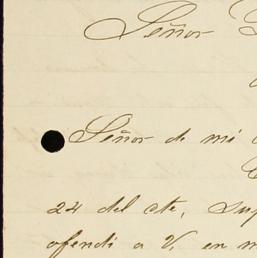 Señor
Señor de mi
24 del cte, sup
ofendi a V, en m